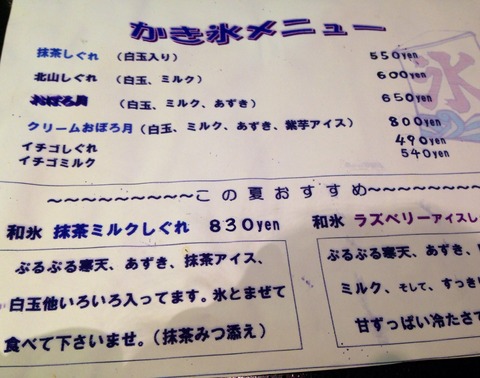 かき氷メニュー
抹茶しぐれ (白玉入り) 550yen
北山しぐれ (白玉、ミルク) 600yen
おぼろ月 (白玉、ミルク、あずき) 650yen
クリームおぼろ月(白玉、ミルク、あずき、紫芋アイス) 800yen
イチゴしぐれ 490yen
イチゴミルク 540yen
氷
~~~~~~~~~この夏おすすめ~~~~~~~
和氷 抹茶ミルクしぐれ 830yen
ぷるぷる寒天、あずき、抹茶アイス、
白玉他いろいろ入ってます。氷とまぜて
食べて下さいませ。(抹茶みつ添え)
和氷 ラズベリーアイスし
ぷるぷる寒天、あずき、
ミルク、そして、すっき
甘ずっぱい冷たさで